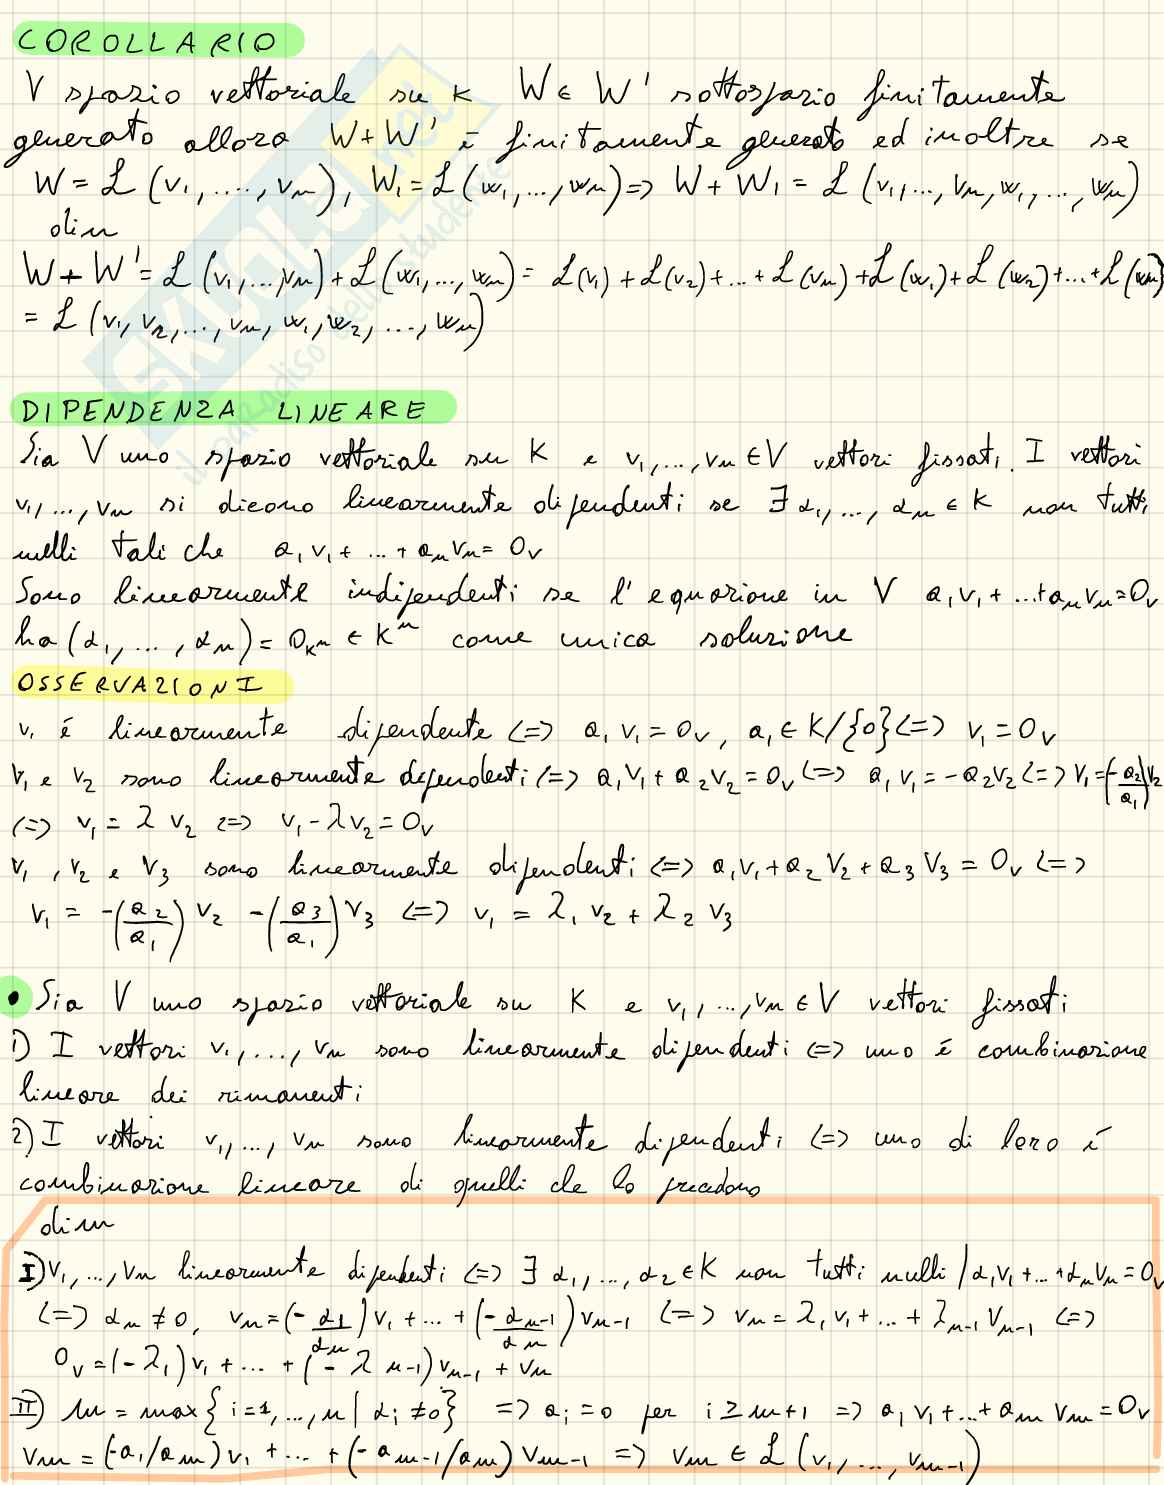 COROLLARIO
V spazio vettoriale su K W e W' sottospazio finitamente
generato allora W+W' è finitamente generato ed inoltre se
W = L (v₁, ...., vₙ), W₁ = L (w₁, ..., wₙ) => W + W₁ = L (v₁, ..., vₙ, w₁, ..., wₙ)
dim
W + W' = L (v₁, ..., vₙ) + L (w₁, ..., wₙ) = L(v₁) + L(v₂) + ... + L (vₙ) + L (w₁) + L (w₂) + ... + L (wₙ)
= L (v₁, v₂, ..., vₙ, w₁, w₂, ..., wₙ)
DIPENDENZA LINEARE
Sia V uno spazio vettoriale su K e v₁, ..., vₙ ∈ V vettori fissati. I vettori
v₁, ..., vₙ si dicono linearmente dipendenti se ∃ α₁, ..., αₙ ∈ K non tutti
nulli tali che a₁v₁ + ... + aₙvₙ = 0ᵥ
Sono linearmente indipendenti se l'equazione in V a₁v₁ + ... + aₙvₙ = 0ᵥ
ha (α₁, ..., αₙ) = 0_Kⁿ ∈ Kⁿ come unica soluzione
OSSERVAZIONI
v₁ é linearmente dipendente <=> a₁v₁ = 0ᵥ, a₁ ∈ K/{0} <=> v₁ = 0ᵥ
v₁ e v₂ sono linearmente dipendenti <=> a₁v₁ + a₂v₂ = 0ᵥ <=> a₁v₁ = -a₂v₂ <=> v₁ = (-a₂/a₁)v₂
<=> v₁ = λ v₂ <=> v₁ - λv₂ = 0ᵥ
v₁, v₂ e v₃ sono linearmente dipendenti <=> a₁v₁ + a₂v₂ + a₃v₃ = 0ᵥ <=>
v₁ = -(a₂/a₁) v₂ -(a₃/a₁) v₃ <=> v₁ = λ₁ v₂ + λ₂ v₃
• Sia V uno spazio vettoriale su K e v₁, ..., vₙ ∈ V vettori fissati
1) I vettori v₁, ..., vₙ sono linearmente dipendenti <=> uno è combinazione
lineare dei rimanenti
2) I vettori v₁, ..., vₙ sono linearmente dipendenti <=> uno di loro è
combinazione lineare di quelli che lo precedono
dim
I) v₁, ..., vₙ linearmente dipendenti <=> ∃ α₁, ..., α₂ ∈ K non tutti nulli / α₁v₁ + ... + αₙvₙ = 0ᵥ
<=> αₙ ≠ 0, vₙ = (-α₁/αₙ) v₁ + ... + (-αₙ₋₁/αₙ) vₙ₋₁ <=> vₙ = λ₁v₁ + ... + λₙ₋₁vₙ₋₁ <=>
0ᵥ = (-λ₁)v₁ + ... + (-λₙ₋₁)vₙ₋₁ + vₙ
II) m = max{i = 1, ..., n | αᵢ ≠ 0} => aᵢ = 0 per i ≥ m+1 => a₁v₁ + ... + aₘvₘ = 0ᵥ
vₘ = (-a₁/aₘ) v₁ + ... + (-aₘ₋₁/aₘ) vₘ₋₁ => vₘ ∈ L (v₁, ..., vₘ₋₁)